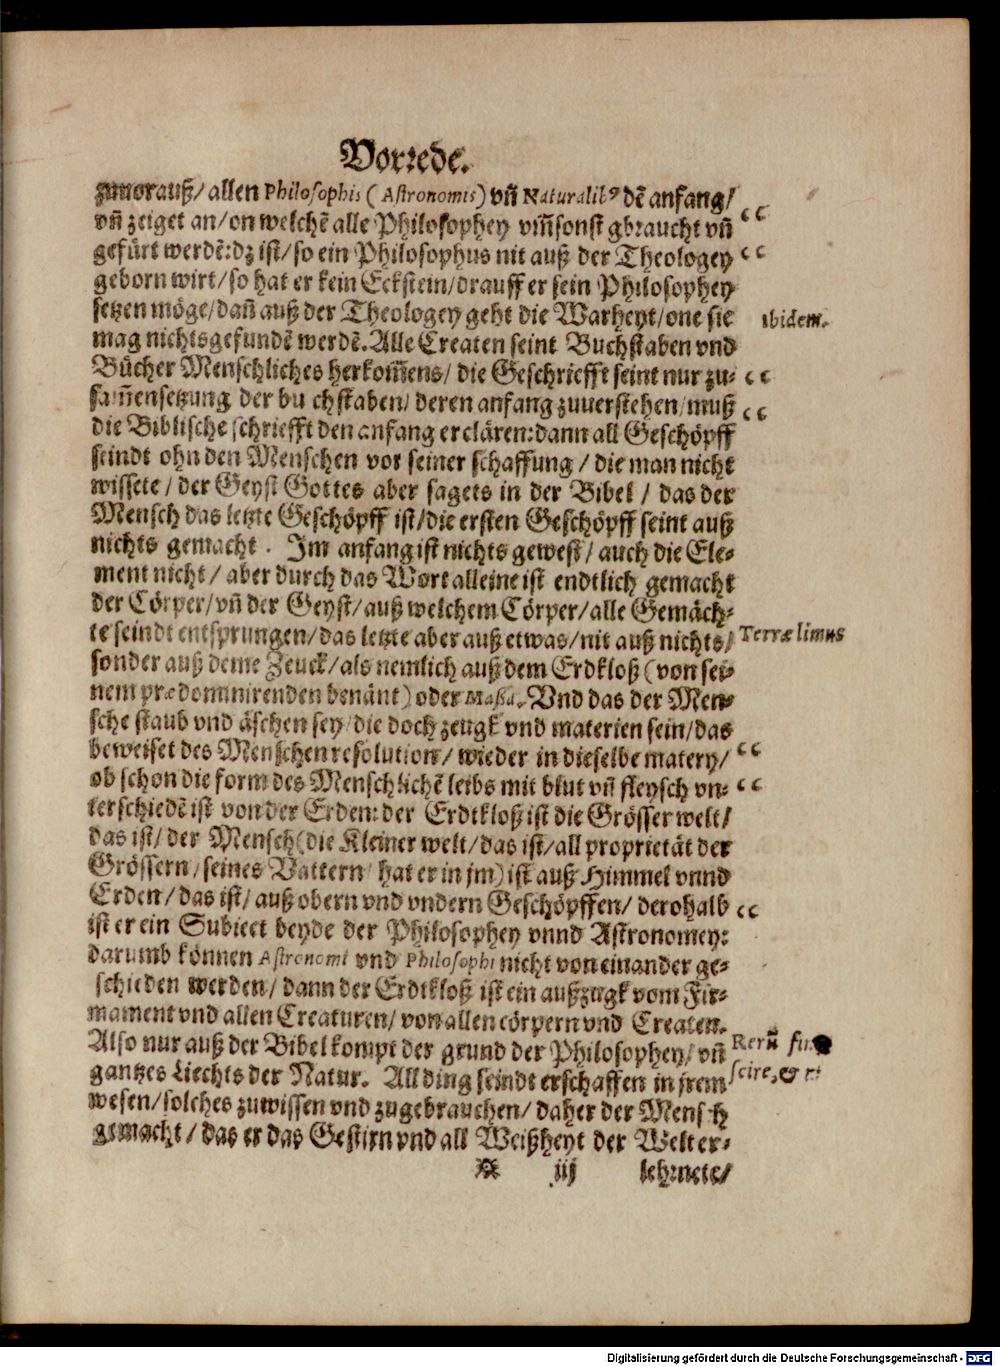 Vorrede.
zuuorauß/ allen Philosophis (Astronomis) vñ Naturalib9 dē anfang/
vñ zeiget an/ on welchē alle Philosophey vm̃sonst gbraucht vñ
gefürt werdē: dz ist/ so ein Philosophus nit auß der Theologey
geborn wirt/ so hat er kein Eckstein/ drauff er sein Philosophey
setzen möge/ dañ auß der Theologey geht die Warheyt/ one sie
ibidem.
mag nichts gefundē werdē. Alle Createn seint Buchstaben vnd
Bücher Menschliches herkom̃ens/ die Geschriefft seint nur zu-
sam̃ensetzung der buchstaben/ deren anfang zuuerstehen/ muß
die Biblische schriefft den anfang erclären: dann all Geschöpff
seindt ohn den Menschen vor seiner schaffung / die man nicht
wissete / der Geyst Gottes aber sagets in der Bibel / das der
Mensch das letzte Geschöpff ist/ die ersten Geschöpff seint auß
nichts gemacht. Im anfang ist nichts gewest/ auch die Ele-
ment nicht / aber durch das Wort alleine ist endtlich gemacht
der Cörper/ vñ der Geyst/ auß welchem Cörper/ alle Gemäch-
te seindt entsprungen/ das letzte aber auß etwas/ nit auß nichts/
Terræ limus
sonder auß deme Zeuck/ als nemlich auß dem Erdkloß (von sei-
nem prædominirenden benänt) oder Massa. Vnd das der Men-
sche staub vnd äschen sey/ die doch zeugk vnd materien sein/ das
beweiset des Menschen resolution/ wieder in dieselbe matery/
ob schon die form des Menschlichē leibs mit blut vñ fleysch vn-
terschiedē ist von der Erden: der Erdtkloß ist die Grösser welt/
das ist/ der Mensch (die Kleiner welt/ das ist/ all proprietät der
Grössern/ seines Vattern hat er in jm) ist auß Himmel vnnd
Erden/ das ist/ auß obern vnd vndern Geschöpffen/ derohalb
ist er ein Subiect beyde der Philosophey vnnd Astronomey:
darumb können Astronomi vnd Philosophi nicht von einander ge-
schieden werden/ dann der Erdtkloß ist ein außzugk vom Fir-
mament vnd allen Creaturen/ von allen cörpern vnd Createn.
Also nur auß der Bibel kompt der grund der Philosophey/ vñ
Rerū
gantzes Liechts der Natur. All ding seindt erschaffen in jrem
scire, &
wesen/ solches zuwissen vnd zugebrauchen/ daher der Mensch
gemacht / das er das Gestirn vnd all Weißheyt der Welt er-
iij lehrnete/
Digitalisierung gefördert durch die Deutsche Forschungsgemeinschaft - DFG